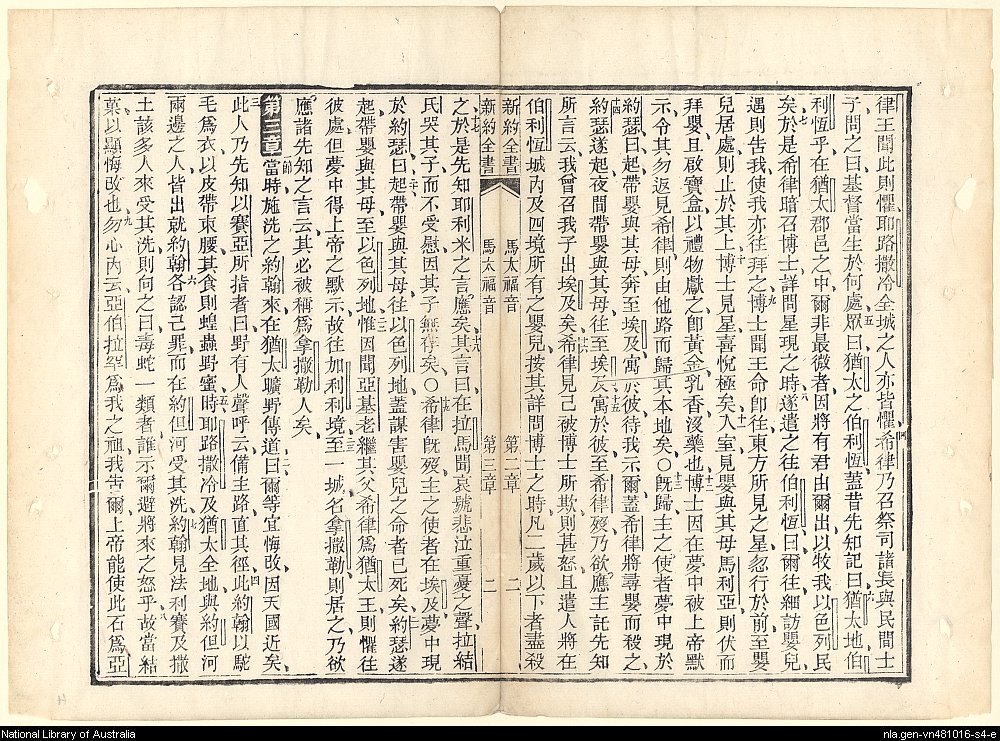 律王聞此則懼耶路撒冷全城之人亦皆懼希律乃召祭司諸長與民間士
子問之曰基督當生於何處眾曰猶太之伯利恆蓋昔先知記曰猶太地伯
利恆乎在猶太郡邑之中爾非最微者因將有君由爾出以牧我以色列民
矣於是希律暗召博士詳問星現之時遂遣之往伯利恆曰爾往細訪嬰兒
遇則告我使我亦往拜之博士聞王命卽往東方所見之星忽行於前至嬰
兒居處則止於其上博士見星喜悅極矣入室見嬰與其母馬利亞則伏而
拜嬰且啟寶盒以禮物獻之卽黃金乳香沒藥也博士因在夢中被上帝默
示令其勿返見希律則由他路而歸其本地矣○旣歸主之使者夢中現於
約瑟曰起帶嬰與其母奔至埃及寓於彼待我示爾蓋希律將尋嬰而殺之
約瑟遂起夜間帶嬰與其母往至埃及寓於彼至希律歿乃欲應主託先知
所言云我曾召我子出埃及矣希律見己被博士所欺則甚怒且遣人將在
伯利恆城內及四境所有之嬰兒按其詳問博士之時凡二歲以下者盡殺
新約全書 馬太福音 第二章 二
新約全書 馬太福音 第三章 二
之於是先知耶利米之言應矣其言曰在拉馬聞哀號悲泣重憂之聲拉結
氏哭其子而不受慰因其子無存矣○希律旣歿主之使者在埃及夢中現
於約瑟曰起帶嬰與其母往以色列地蓋謀害嬰兒之命者已死矣約瑟遂
起帶嬰與其母至以色列地惟因聞亞基老繼其父希律爲猶太王則懼往
彼處但夢中得上帝之默示故往加利利境至一城名拿撒勒則居之乃欲
應諸先知之言云其必被稱爲拿撒勒人矣
第三章 一節 當時施洗之約翰來在猶太曠野傳道曰爾等宜悔改因天國近矣
此人乃先知以賽亞所指者曰野有人聲呼云備主路直其徑此約翰以駝
毛爲衣以皮帶束腰其食則蝗蟲野蜜時耶路撒冷及猶太全地與約但河
兩邊之人皆出就約翰各認己罪而在約但河受其洗約翰見法利賽及撒
土該多人來受其洗則向之曰毒蛇一類者誰示爾避將來之怒乎故當結
菓以顯悔改也勿心內云亞伯拉罕爲我之祖我告爾上帝能使此石爲亞
National Library of Australia
nla.gen-vn481016-s4-e